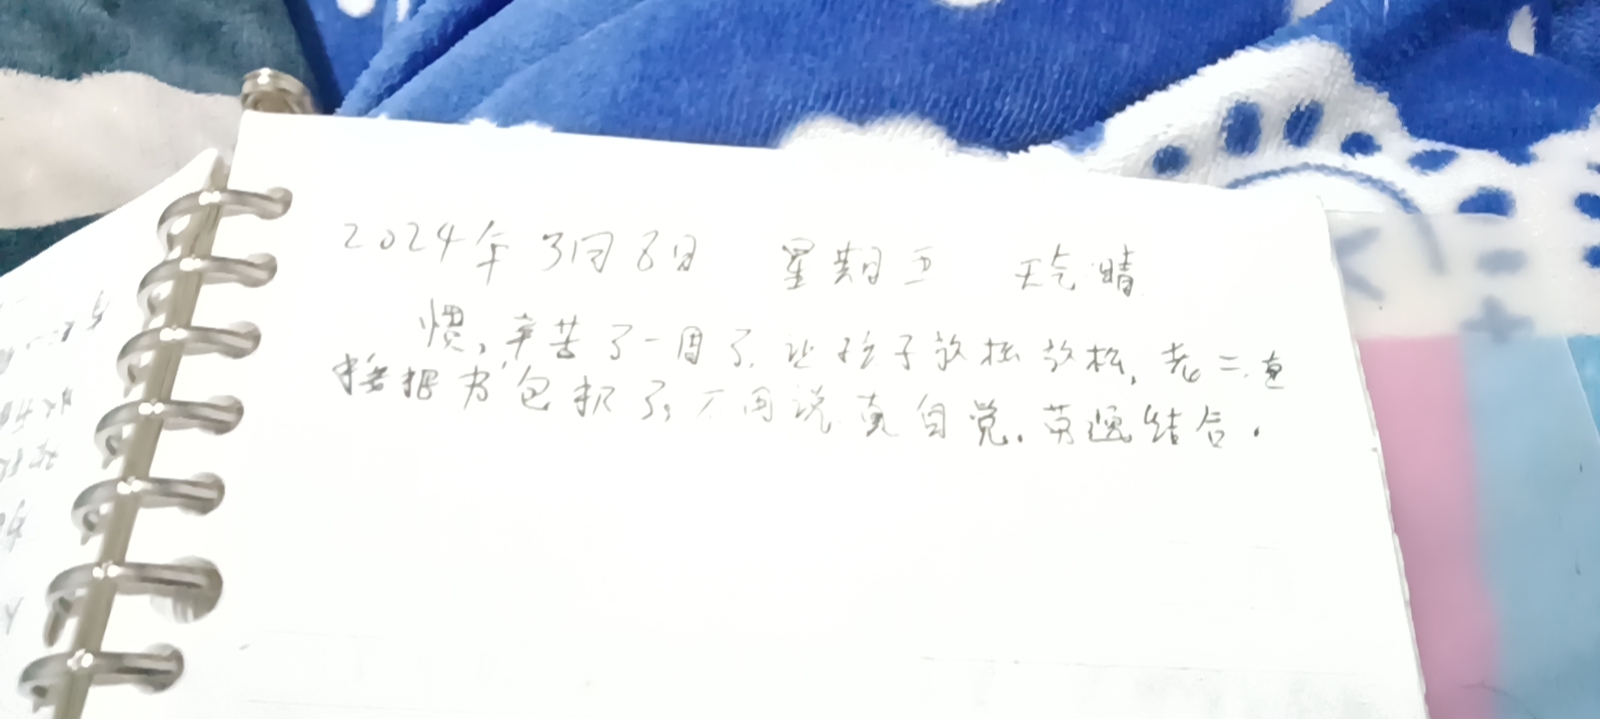 2024年3月8日 星期五 天气晴
惯,辛苦了一周了,让孩子放松放松,老二直
接把书包扔了,不用说真自觉.劳逸结合.